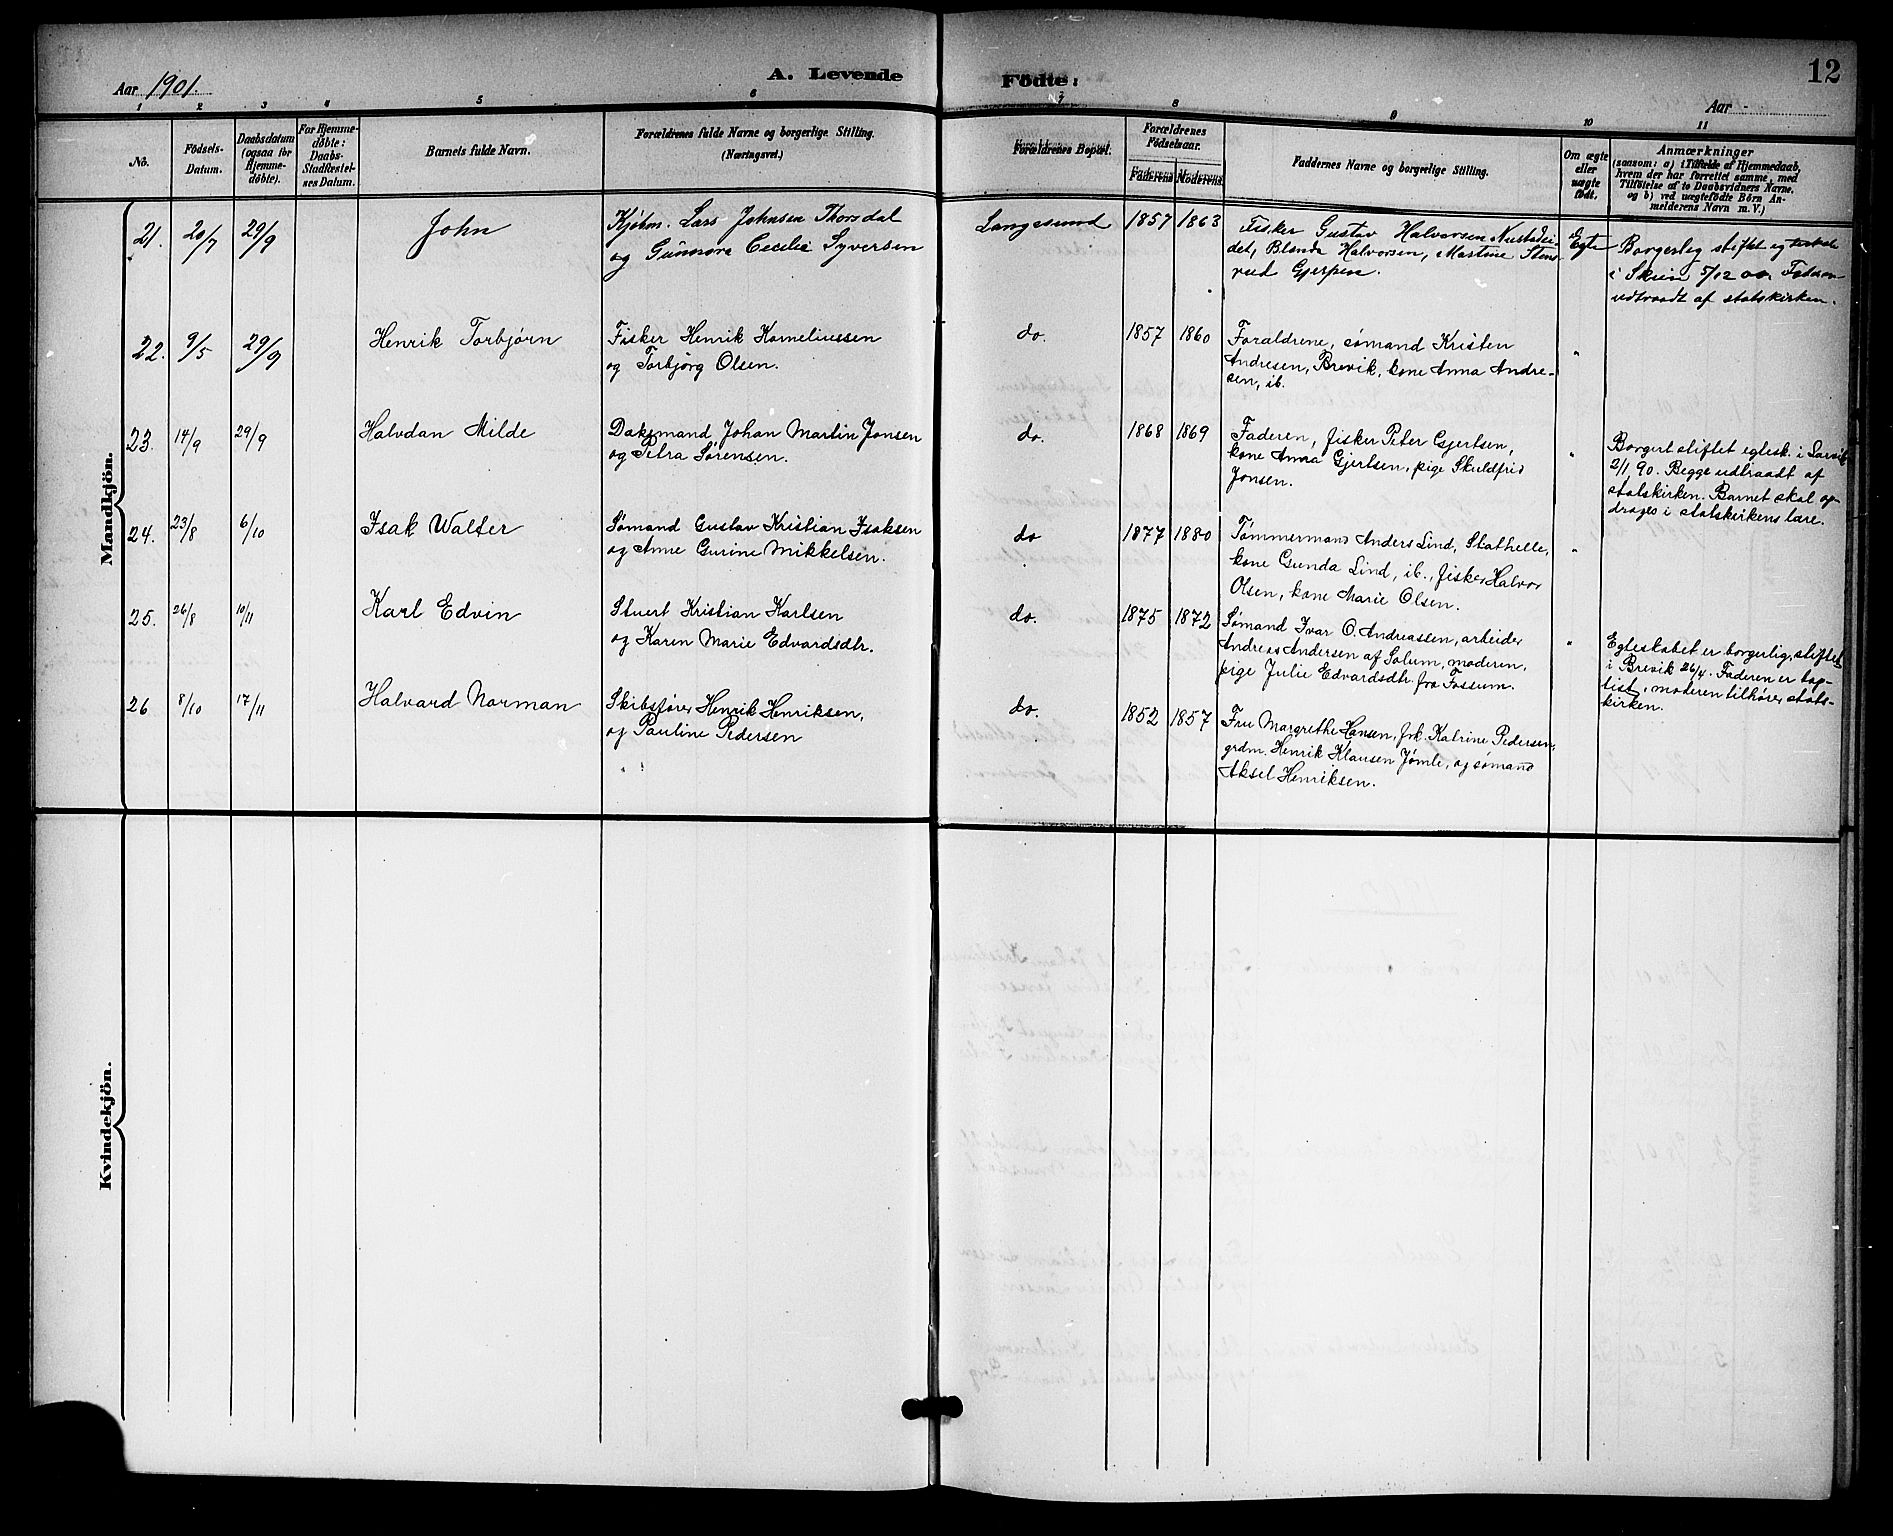 Aar 1901. A. Levende Födte: 12
Aar
1 2 3 4 5 6 7 8 9 10 11
No. Födsels-Datum. Daabsdatum (ogsaa for Hjemmedöbte). For Hjemmedöbte: Daabs-Stadfestelses Datum. Barnets fulde Navn. Forældrenes fulde Navne og borgerlige Stilling. (Næringsvei.) Forældrenes Bopæl. Forældrenes Födselsaar. Faderens Moderens. Faddernes Navne og borgerlige Stilling. Om ægte eller uægte födt. Anmærkninger (saasom: a) i Tilfælde af Hjemmedaab, hvem der har forrettet samme, med Tilföielse af to Daabsvidners Navne, og b) ved uægtefödte Börn Anmelderens Navn m. V.)
Mandkjön.
21. 20/7 29/9 John Kjøbm. Lars Johnsen Thorsdal Langesund 1857 1863 Fisker Gustav Halvorsen Egte Borgerlig stiftet
og Gunnora Cecilia Syversen det, Blenda Halvorsen, Martine Stens- i Skien 5/12 00. Faderen
rud Gjerpen. udtraadt af statskirken.
22. 9/5 29/9 Henrik Torbjørn Fisker Henrik Korneliussen do. 1857 1860 Foraldrene, sømand Kristen "
og Torbjørg Olsen. Andresen, Brevik, kone Anna Andre-
sen, ib.
23. 14/9 29/9 Halvdan Milde Daksmand Johan Martin Jonsen do. 1868 1869 Faderen, fisker Peter Gjertsen, " Borgerl. stiftet egtesk. i Larvik
og Petra Sørensen. kone Anna Gjertsen, pige Skuldfrid 2/1 90. Begge udtraadt af
Jonsen. statskirken. Barnet skal op-
drages i statskirkens lære.
24. 23/8 6/10 Isak Walter Sømand Gustav Kristian Isaksen do 1877 1880 Tømmermand Anders Lind, Stathelle, "
og Anne Gurine Mikkelsen. kone Gunda Lind, ib., fisker Halvor
Olsen, kone Marie Olsen.
25. 26/8 10/11 Karl Edvin Stuert Kristian Karlsen do. 1875 1872 Sømand Ivar O. Andreassen, arbeider " Egteskabet er borgerlig stiftet
og Karen Marie Edvardsdtr. Andreas Andersen af Solum, moderen, i Brevik 26/4. Faderen er bap-
pige Julie Edvardsdtr. fra Fossum. tist, moderen tilhører stats-
kirken.
26 8/10 17/11 Halvard Norman Skibsfører Henrik Henriksen, do. 1852 1857 Fru Margrethe Hansen, frk. Katrine Pedersen,
og Pauline Pedersen grdm. Henrik Klausen Jømle, og sømand
Aksel Henriksen.
Kvindekjön.